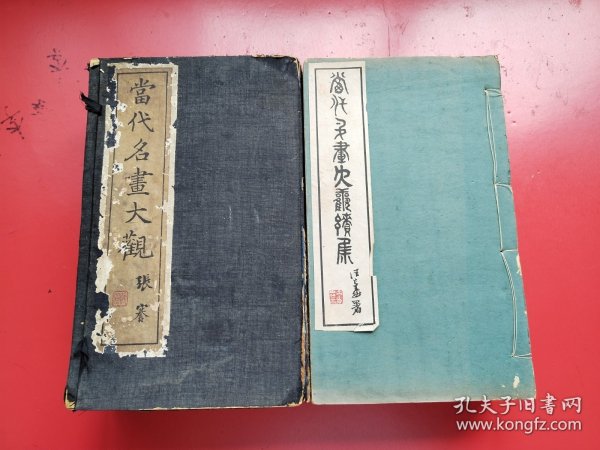 當代名畫大觀
張謇
當代名畫大觀續集
署
孔夫子旧书网
www.kongfz.com